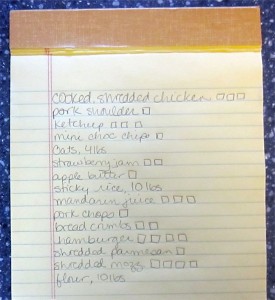 cooked, shredded chicken □□□
pork shoulder □
ketchup □□□
mini choc chips □
Oats, 4lbs
strawberry jam □□
apple butter □
sticky rice, 10 lbs
mandarin juice □□□
pork chops □
bread crumbs □□
hamburger □□□□
shredded parmesan □
shredded mozz □□□□
flour, 10 lbs